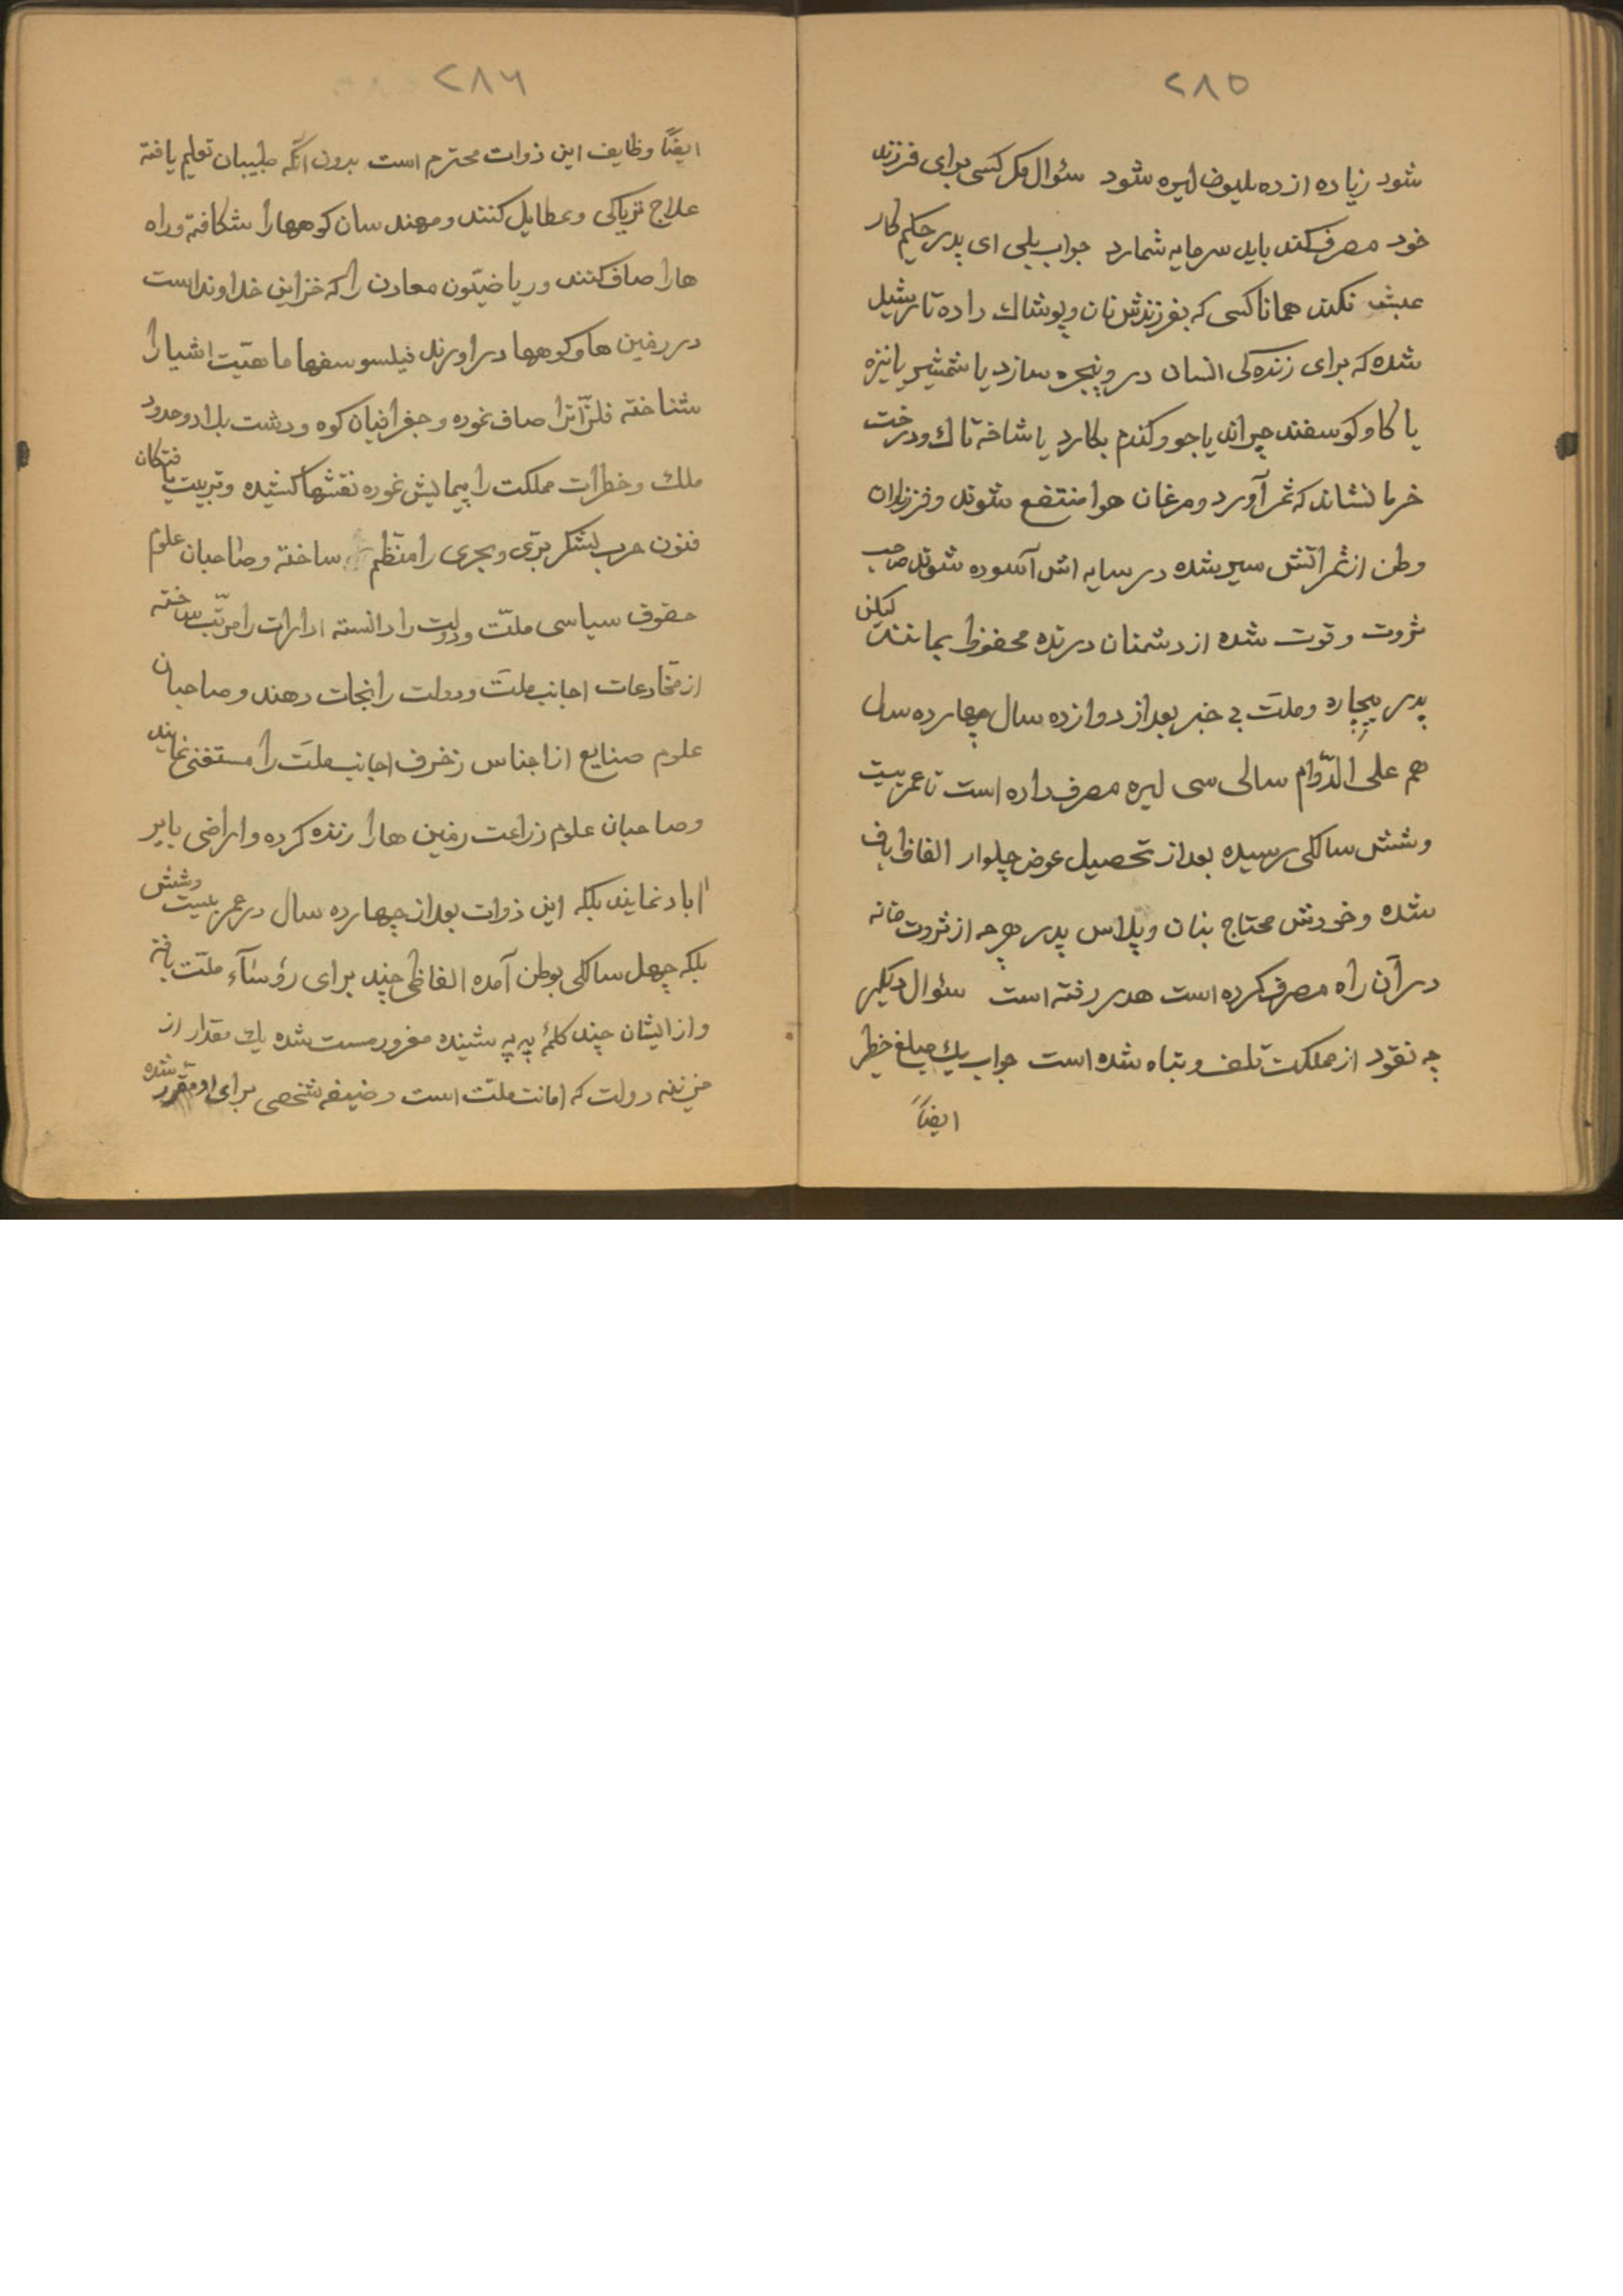 ۲۸۵
شود زیاده از ده ملیوضا لیره شود سئوال مکر کسی برای فرزند
خود مصرف کند باید سرمایه شمارد جواب بلی ای پدر حکیم کار
عبث نکند همانا کسی که بفرزندش نان و پوشاك داده تا رشید
شده که برای زنده کی انسان در و پنجره سازد یا شمشیر یا نیزه
یا کاو کوسفند چراند یا جو و کندم بکارد یا شاخه تاك و درخت
خرما نشاند که ثمر آورد و مرغان هوا منتفع شوند و فرزندان
وطن از ثمراتش سیر شده در سایه اش آسوده شوند صاحب
ثروت و قوت شده از دشمنان درنده محفوظ بمانند لیکن
پدر بیچاره و ملّت بی خبر بعد از دوازده سال چهارده سال
هم علی الدّوام سالی سی لیره مصرف داده است تا عمر بیت
و شش سالکی رسیده بعد از تحصیل عوض چلوار الفاظ باف
شده و خودش محتاج بنان و پلاس پدر هر چه از ثروت خانه
در آن راه مصرف کرده است هدر رفته است سئوال دیکر
چه نقود از مملکت تلف و تباه شده است جواب یك مبلغ خطیر
ایضاً
۲۸۶
ایضاً وظایف این ذوات محترم است بدون آنکه طبیبان تعلیم یافته
علاج تریاکی و عطایل کنند و مهندسان کوهها را شکافته و راه
ها را صاف کنند و ریاضیّون معادن را که خزاین خداوند است
در زمین ها و کوهها در اورند فیلسوسفها ماهیّت اشیا را
شناخته فلزّاترا صاف نموده و جغرافیان کوه و دشت بلاد و حدود
ملك و خطرات مملکت را پیمایش نموده نقشها کشیده و تربیت یافتکان
فنون حرب لشکر برّی و بحری را منظّم ساخته و صاحبان علوم
حقوق سیاسی ملّت و دولت را دانسته ادارات را مرتّب ساخته
از مخادعات اجانب ملّت و دولت را نجات دهند و صاحبان
علوم صنایع از اجناس زخرف اجانب ملّت را مستغنی نمایند
و صاحبان علوم زراعت زمین ها را زنده کرده و اراضی بایر
اباد نمایند بلکه این ذوات بعد از چهارده سال در عمر بیست و شش
بلکه چهل سالکی بوطن آمده الفاظی چند برای رؤسآء ملّت بافته
و از ایشان چند کلمۀ په په شینده مغرور مست شده یك مقدار از
خزینه دولت که امانت ملّت است وضیفه شخصی برای او مقرر شده